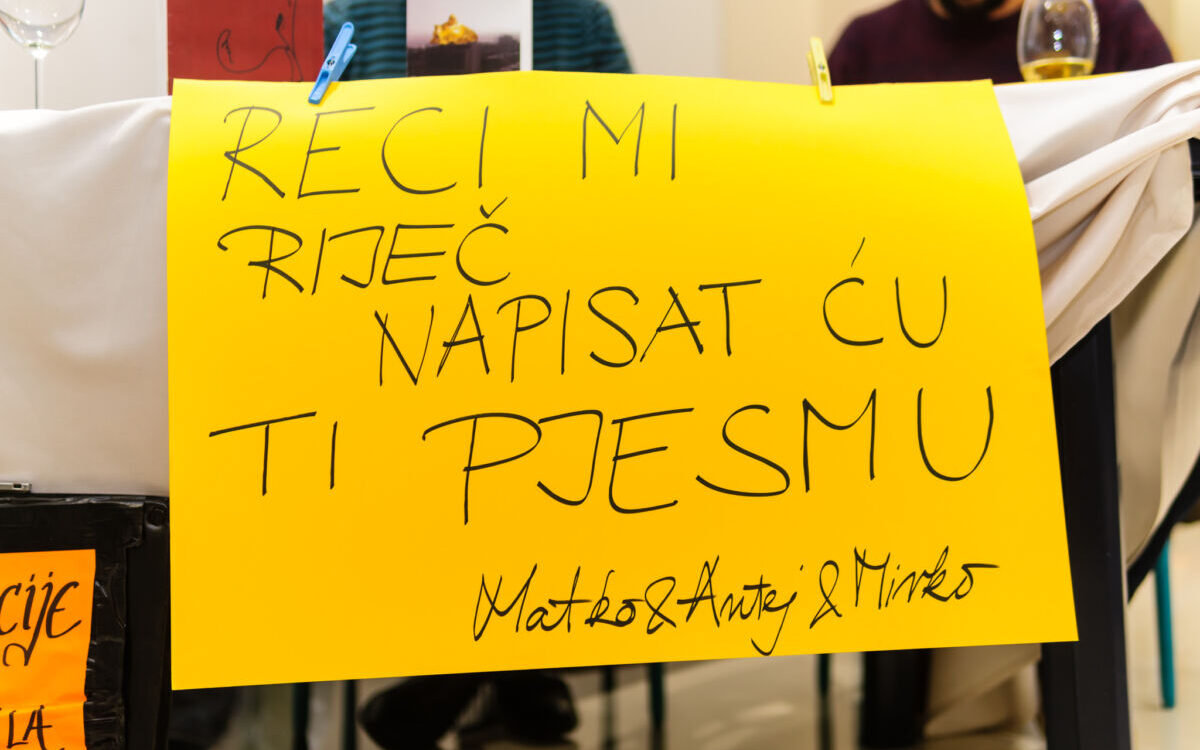 RECI MI
RIJEČ
NAPISAT ĆU
TI PJESMU
Matko & Antej & Mirko
cije
LA